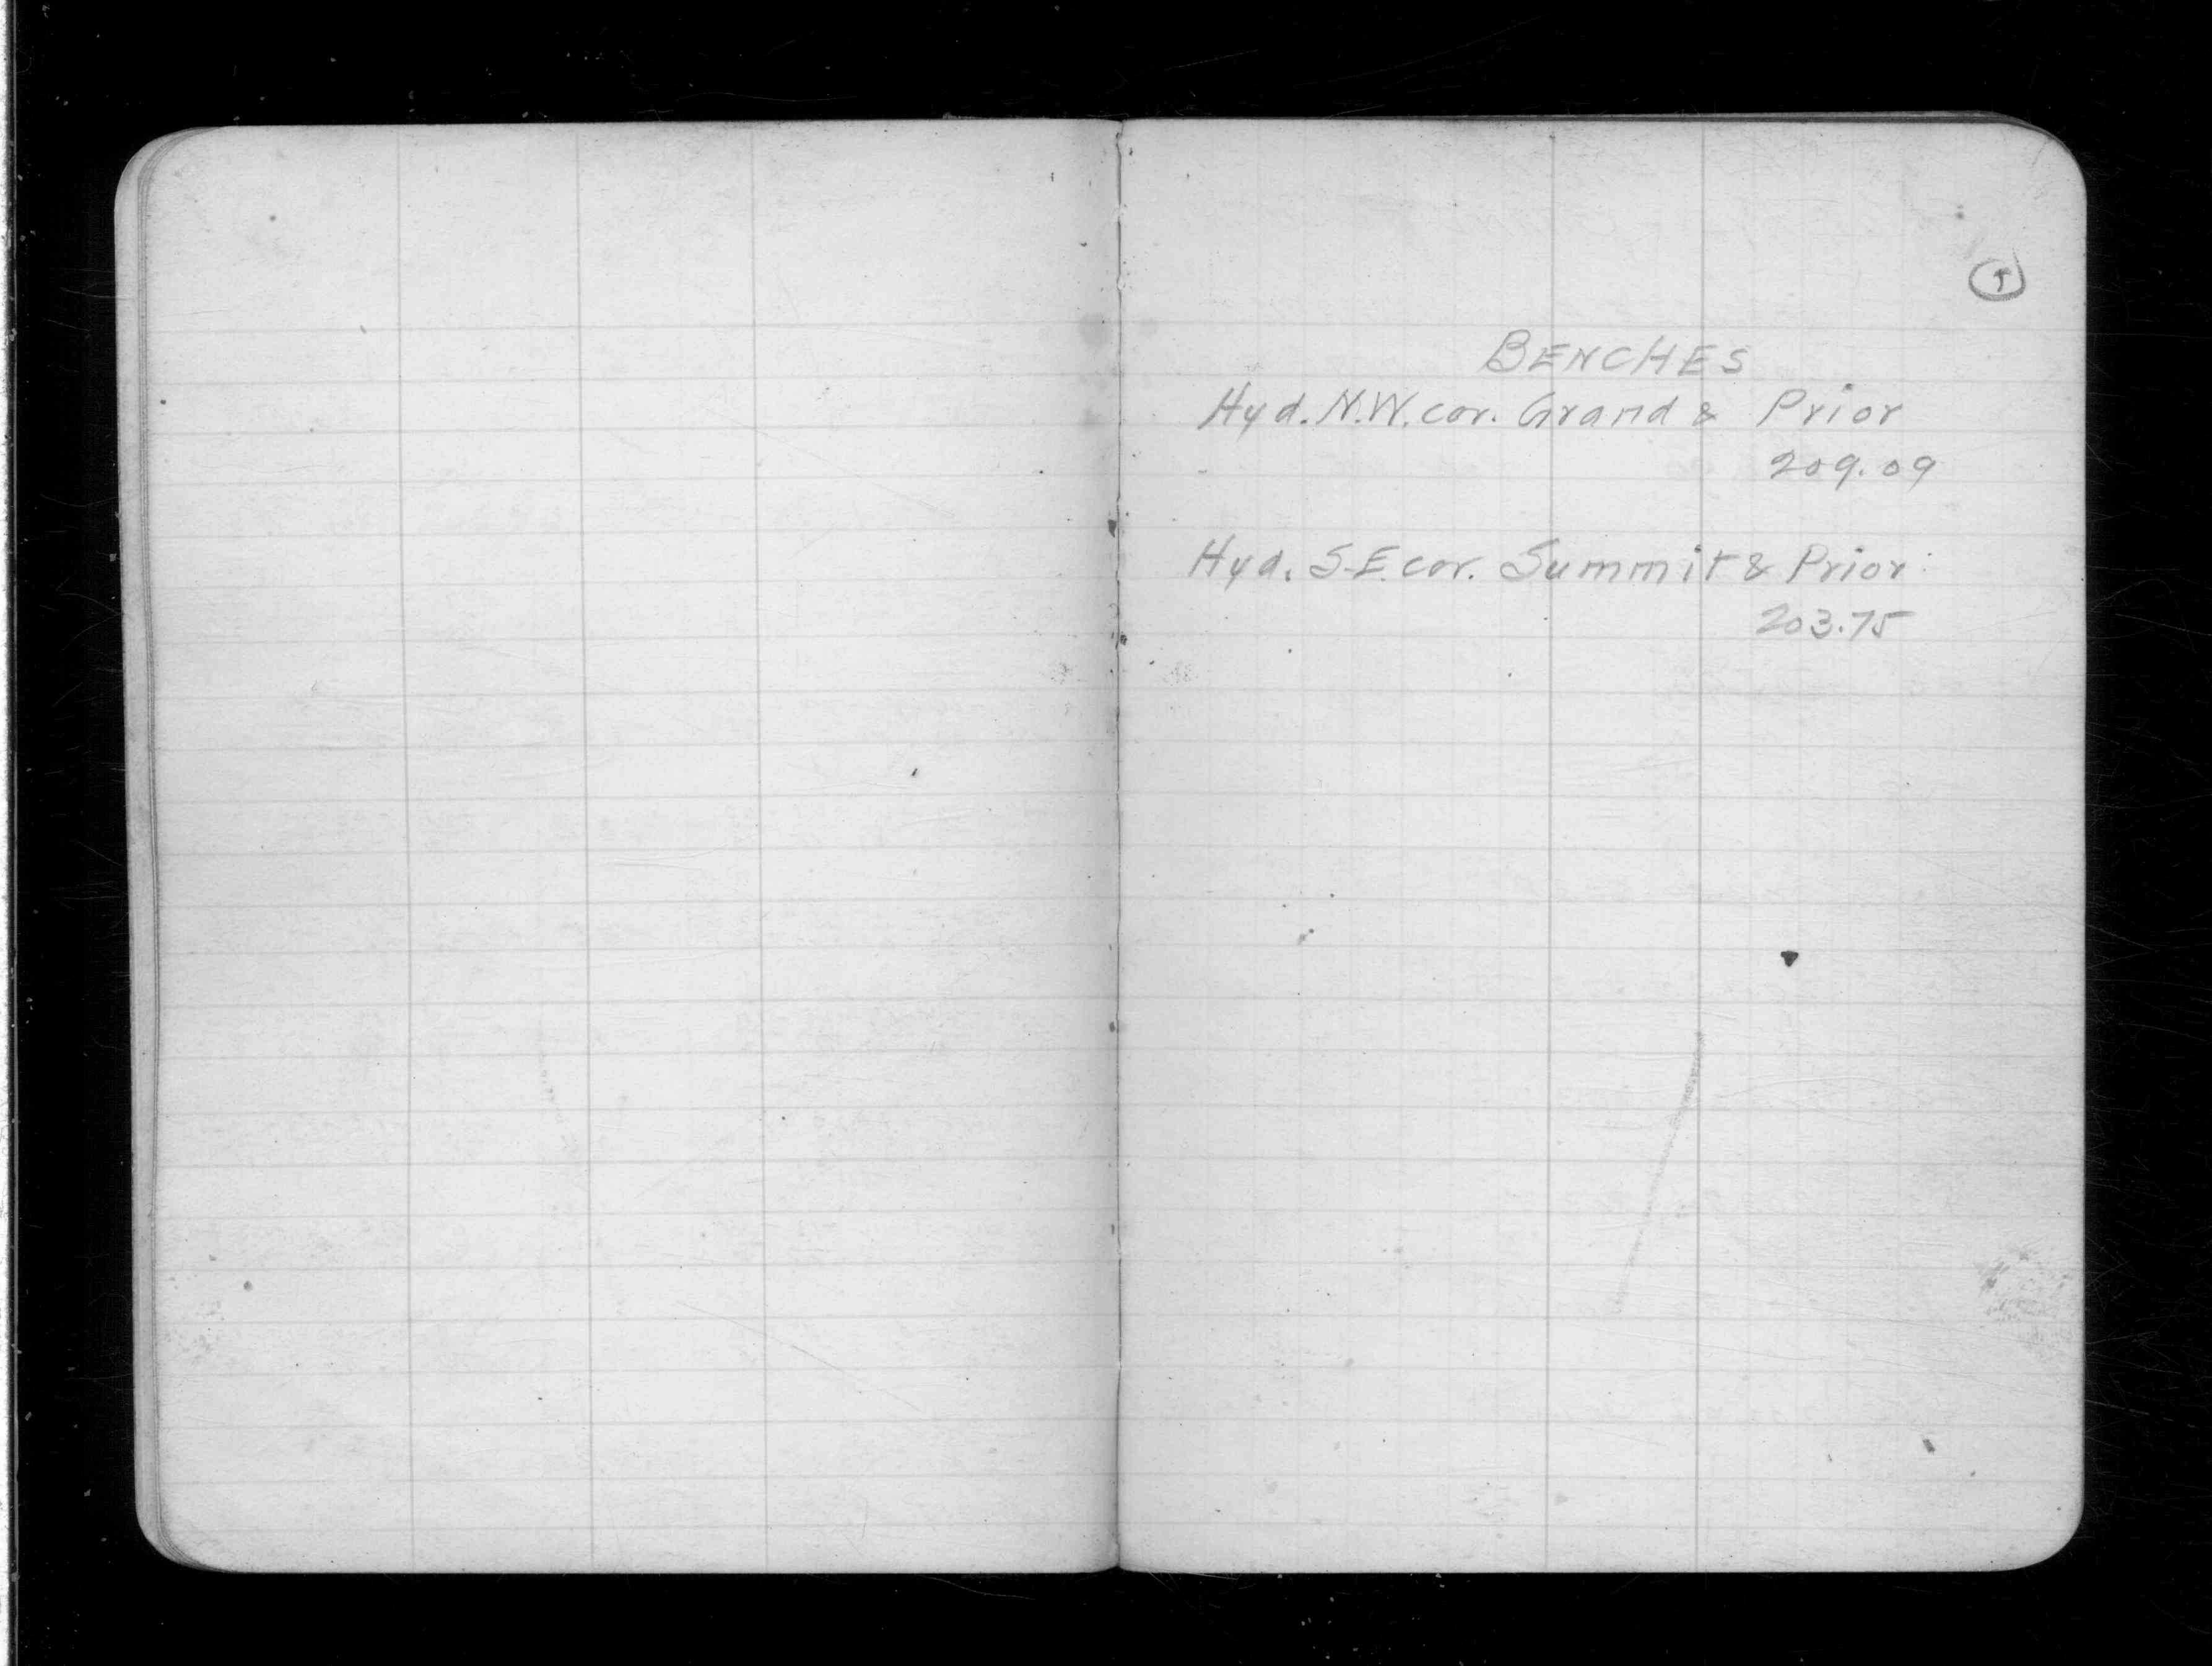 BENCHES
Hyd. N.W. cor. Grand & Prior
209.09
Hyd. S.E. cor. Summit & Prior
203.75